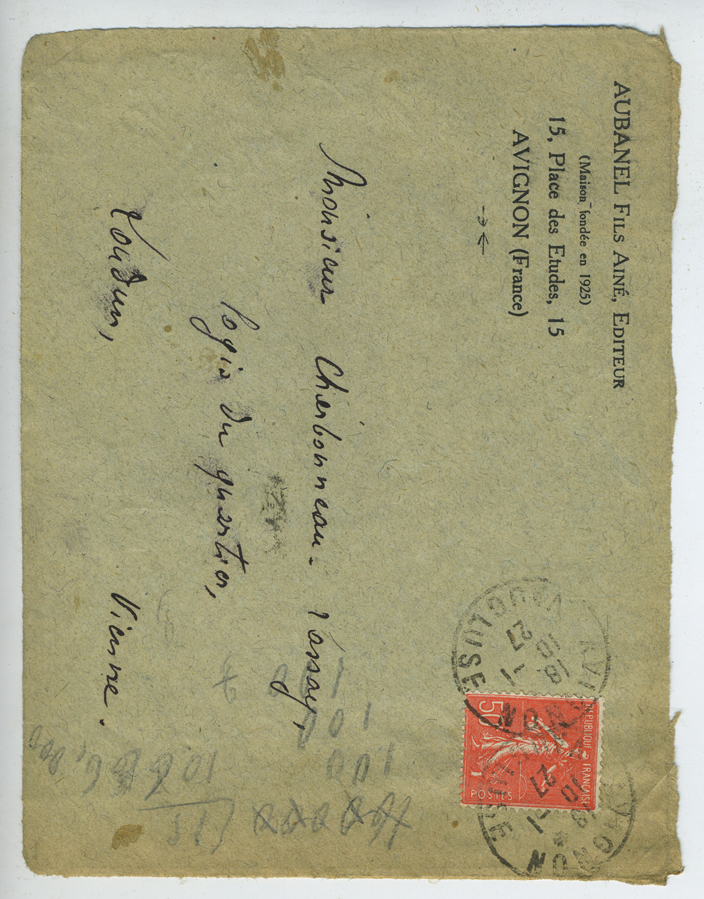 AUBANEL FILS AINÉ, EDITEUR
(Maison fondée en 1925)
15, Place des Etudes, 15
AVIGNON (France)
Monsieur Charbonneau-Lassay,
logis du quartier,
Loudun,
Vienne.
AVIGNON
VAUCLUSE
18
-1
27
REPUBLIQUE FRANÇAISE
50
POSTES
AVIGNON
-1
27
100
100